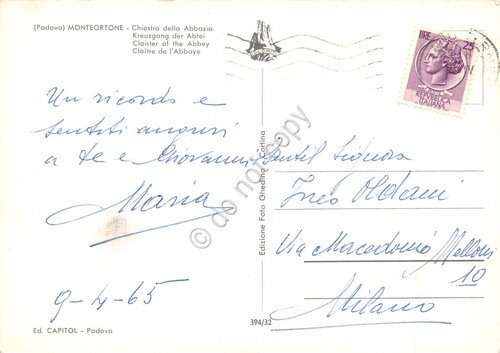 (Padova) MONTEORTONE - Chiostro della Abbazia
Kreuzgang der Abtei
Cloister of the Abbey
Cloître de l'Abbaye
Un ricordo e
sentiti auguri
a te e Giovanni
Maria
9-4-65
Ed. CAPITOL - Padova
Edizione Foto Ghedina - Cortina
394/32
LIRE 25
REPUBBLICA
ITALIANA
Gentil Signora
Ines Oldani
Via Macedonio Melloni
10
Milano
© do not copy